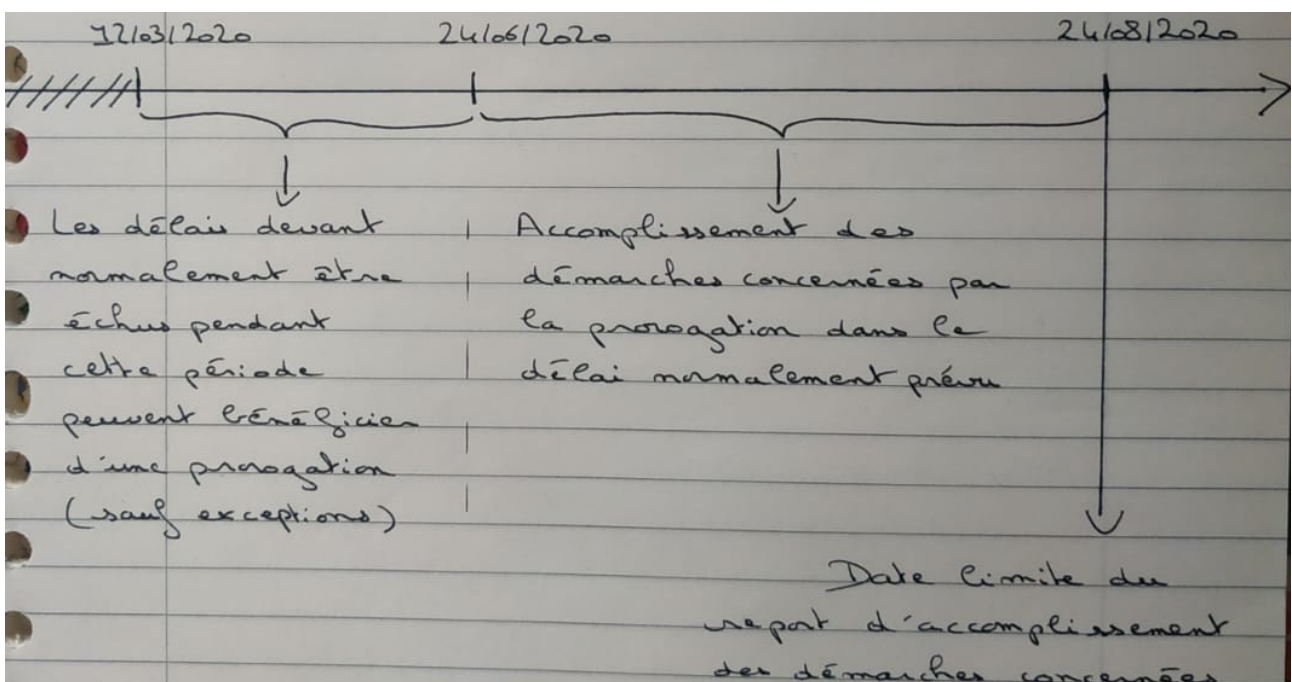 12/03/2020
24/06/2020
24/08/2020
Les délais devant
normalement être
échus pendant
cette période
peuvent bénéficier
d'une prorogation
(sauf exceptions)
Accomplissement des
démarches concernées par
la prorogation dans le
délai normalement prévu
Date limite du
report d'accomplissement
des démarches concernées